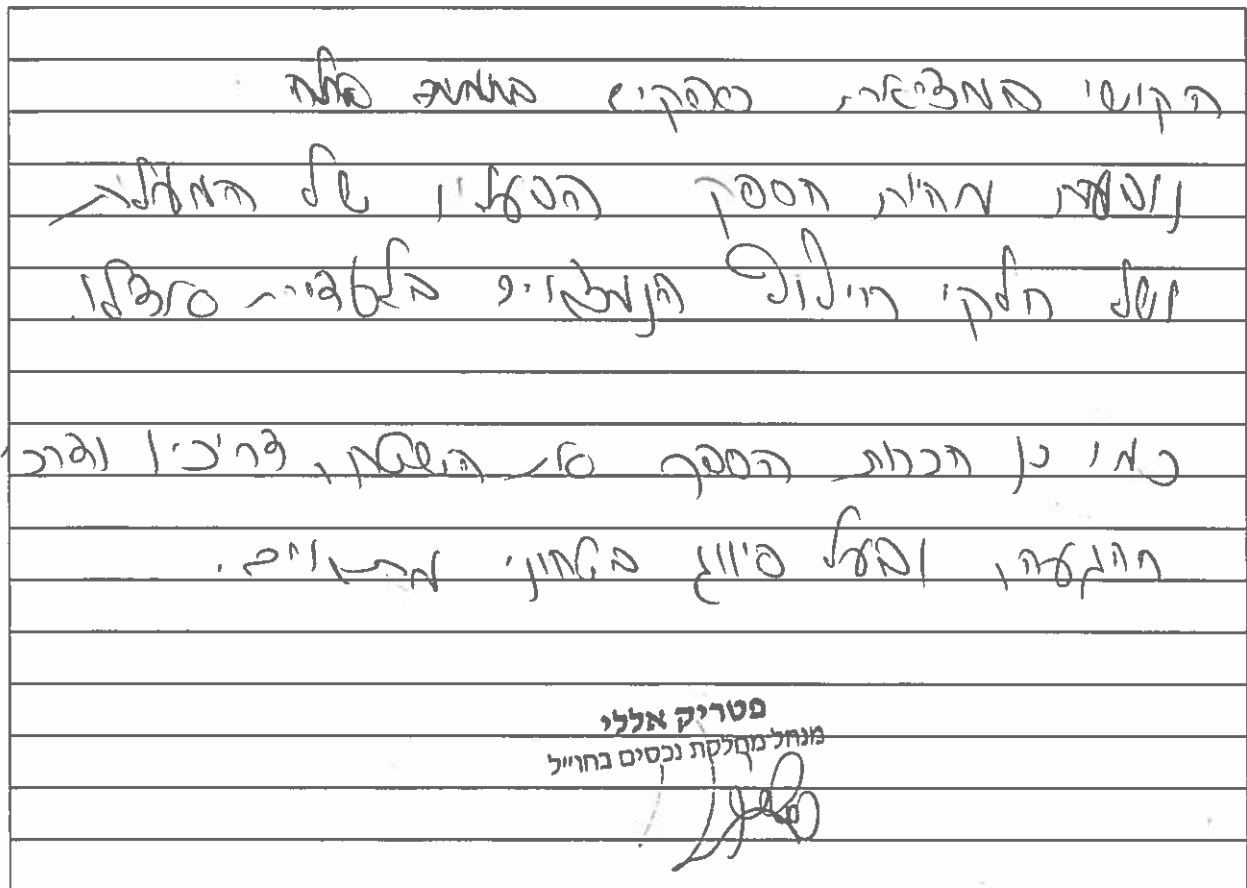 הקושי במציאת ספקים
נובעת מהיות הספק הבעלים של המעלית
ושל חלקי חילוף הנמצאים בלעדית אצלו.
כמו כן הכרות הספק את השטח, דרכי ודרכי
ההגעה, ובעל סיווג בטחוני מתאים.
פטריק אללי
מנהל מחלקת נכסים בחו״ל